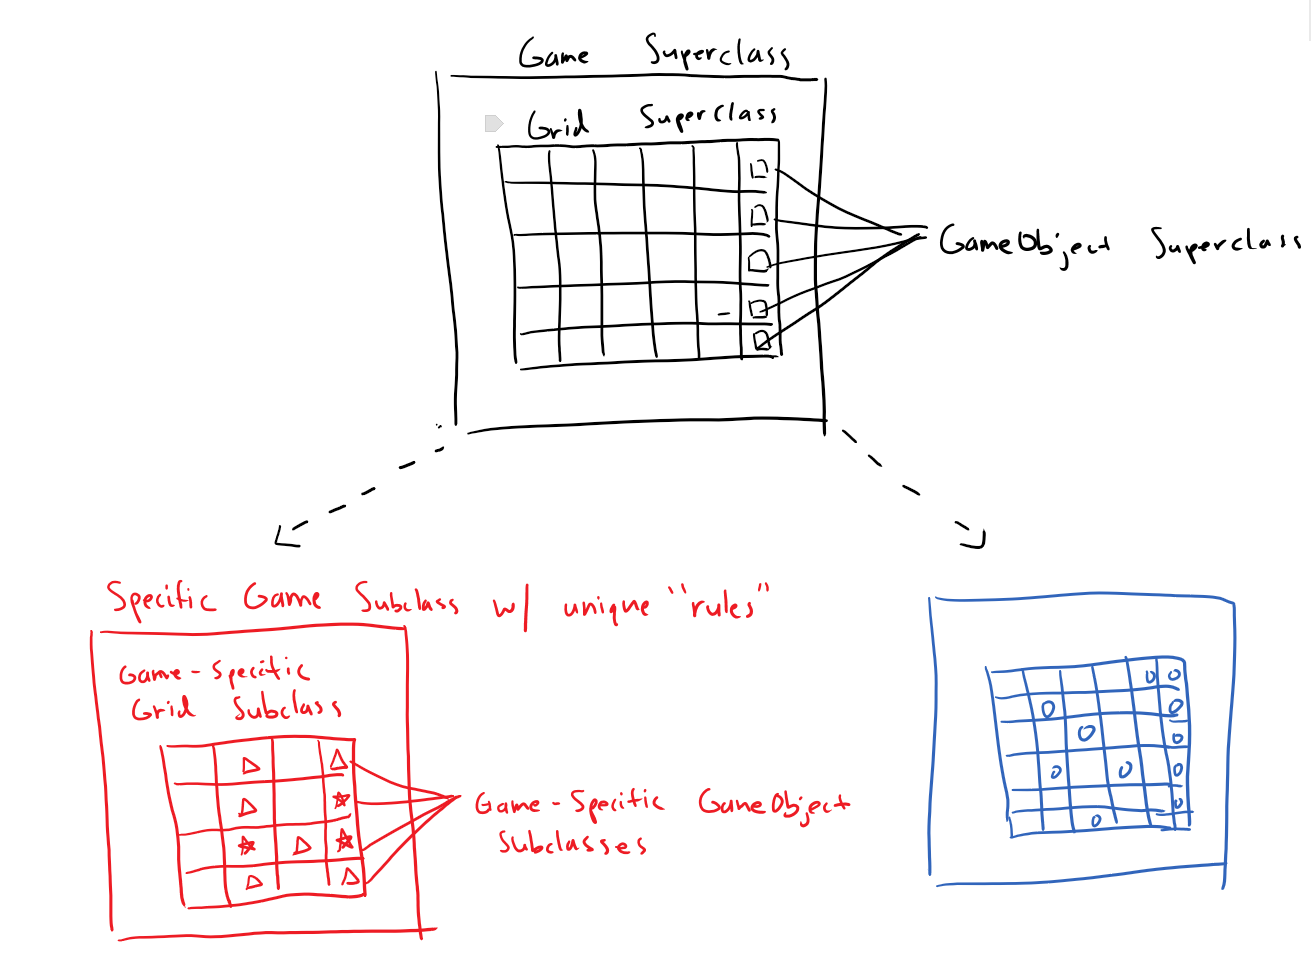 Game Superclass
Grid Superclass
GameObject Superclass
Specific Game Subclass w/ unique "rules"
Game-Specific
Grid Subclass
Game-Specific GameObject
Subclasses